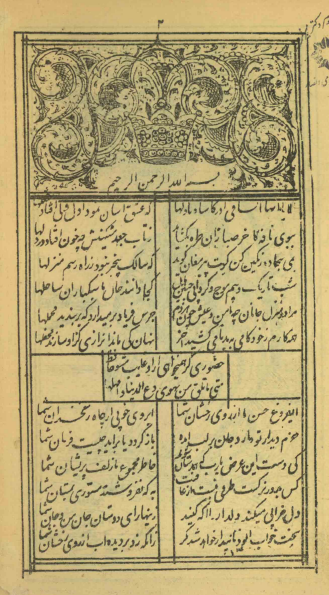 ۲
بسم الله الرحمن الرحیم
الا یا ایها الساقی ادر کاسا و ناولها که عشق آسان نمود اول ولی افتاد مشکلها
ببوی نافه کاخر صبا زان طره بگشاید ز تاب جعد مشکینش چه خون افتاد در دلها
بمی سجاده رنگین کن گرت پیر مغان گوید که سالک بیخبر نبود ز راه و رسم منزلها
شب تاریک و بیم موج و گردابی چنین هایل کجا دانند حال ما سبکباران ساحلها
مرا در منزل جانان چه امن و عیش چون هر دم جرس فریاد میدارد که بربندید محملها
همه کارم ز خود کامی ببدنامی کشید آخر نهان کی ماند آن رازی کزو سازند محفلها
حضوری گر همی خواهی ازو غایب مشو حافظ
متی ما تلق من تهوی دع الدنیا و اهملها
ای فروغ حسن ماه از روی رخشان شما آبروی خوبی از چاه زنخدان شما
عزم دیدار تو دارد جان بر لب آمده باز گردد یا برآید چیست فرمان شما
کی دهد دست این غرض یا رب که همدستان شوند خاطر مجموع ما زلف پریشان شما
کس بدور نرگست طرفی نبست از عافیت به که نفروشند مستوری بمستان شما
دل خرابی میکند دلدار را آگه کنید زینهار ای دوستان جان من و جان شما
بخت خواب آلود ما بیدار خواهد شد مگر زانکه زد بر دیده آب از روی رخشان شما